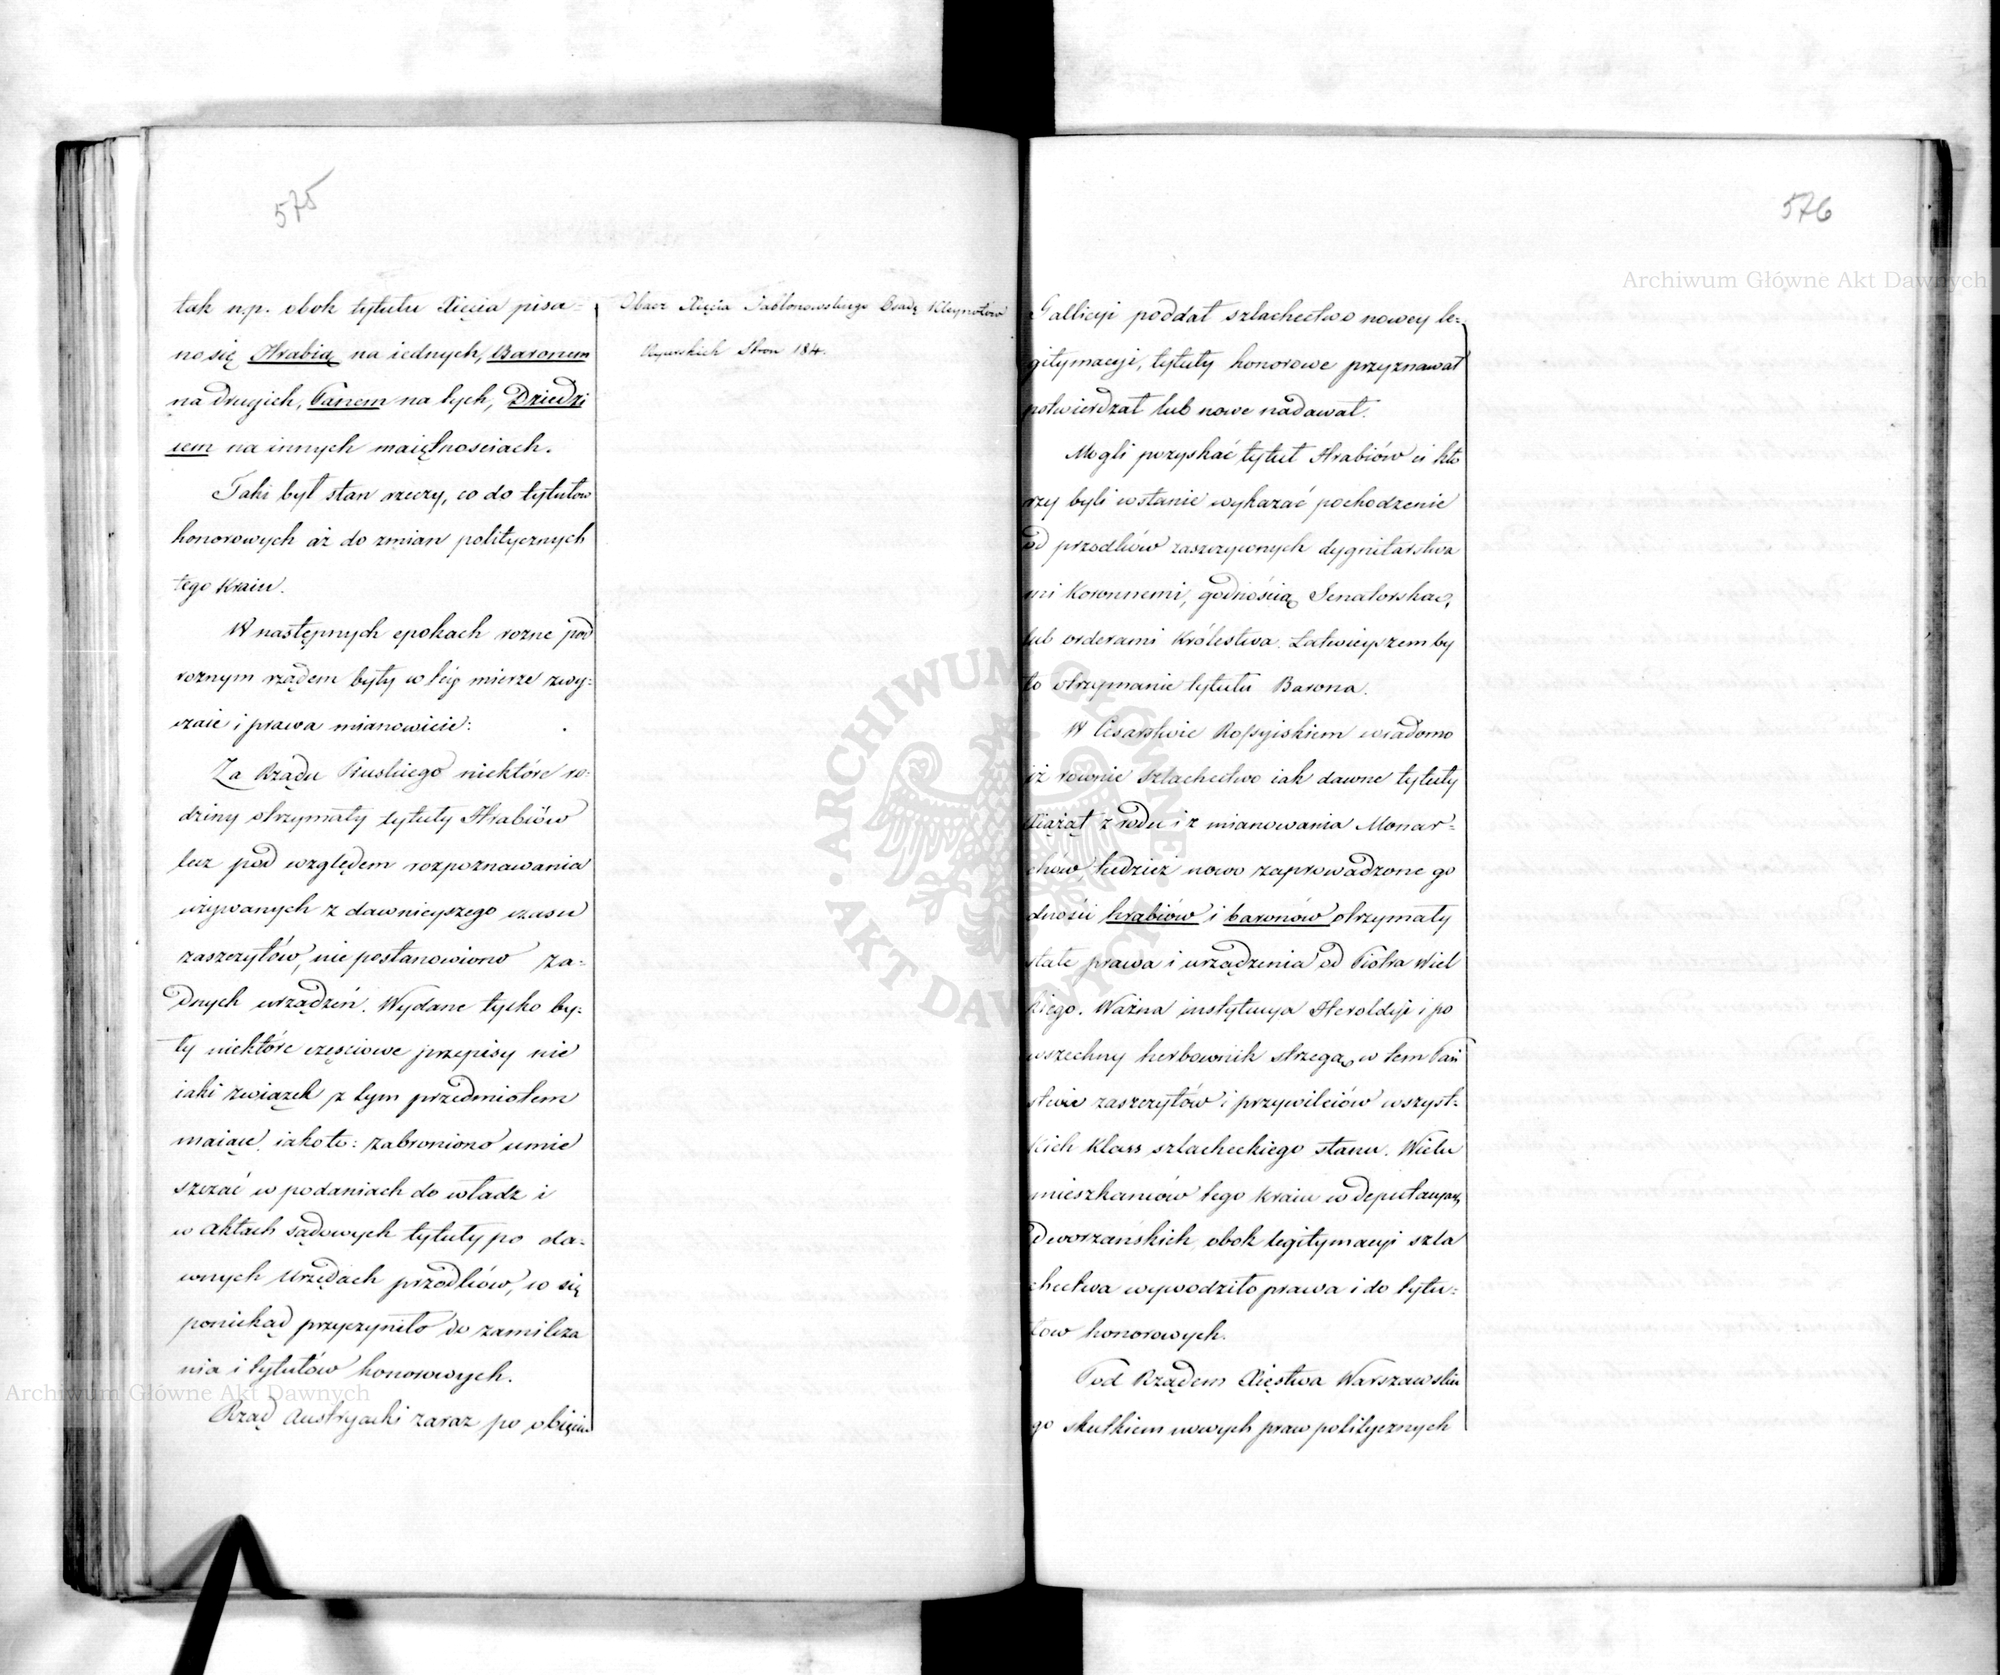 575
tak np. obok tytułu Xięcia pisa-
no się Hrabią na iednych, Baronem
na drugich, Panem na tych, Dziedzi
cem na innych maiętnosciach.
Taki był stan rzeczy, co do tytułow
honorowych aż do zmian politycznych
tego Kraiu.
W następnych epokach rozne pod
roznym rządem były w téy mierze zwy-
czaie i prawa mianowicie:
Za Rządu Pruskiego niektóre ro-
dziny otrzymały tytuły Hrabiów
lecz pod względem rozpoznawania
używanych z dawnieyszego czasu
zaszczytów, nie postanowiono ża-
dnych urządzeń. Wydane tylko by-
ły niektóre częściowe przepisy nie
iaki związek z tym przedmiotem
maiące. iako to: zabroniono umie
szczać w podaniach do władz i
w aktach sądowych tytuły po da-
wnych Urzędach przodków, co się
poniekąd przyczyniło do zamilcza
nia i tytułów honorowych.
Rząd Austryacki zaraz po obięciu
Obacz Xięcia Jabłonowskiego Kleynotów
Stron 184.
576
Gallicyi poddał szlachectwo nowey le-
gitymacyi, tytuły honorowe przyznawał
potwierdzał lub nowe nadawał.
Mogli pozyskać tytuł Hrabiów ci któ
rzy byli wstanie wykazać pochodzenie
od przodków zaszczyconych dygnitarstwa
mi Koronnemi, godnością Senatorską,
lub orderami Królestwa. Łatwieyszem by
ło otrzymanie tytułu Barona.
W Cesarstwie Rossyiskiem wiadomo
iż rownie Szlachectwo iak dawne tytuły
Xiążąt z rodu i z mianowania Monar-
chów, tudzież nowo zaprowadzone go
dności hrabiów i baronów otrzymały
stałe prawa i urządzenia od Piotra Wiel
kiego. Ważna instytucya Heroldyi i po
wszechny herbownik strzegą w tem Pań
stwie zaszczytów i przywileiów wszyst-
kich Klass szlacheckiego stanu. Wielu
mieszkańców tego Kraiu w deputacyach
Dworzańskich obok legitymacyi szla
chectwa wywodziło prawa i do tytu-
łow honorowych.
Pod Rządem Xięstwa Warszawskie
go skutkiem nowych praw politycznych
Archiwum Główne Akt Dawnych
ARCHIWUM GŁÓWNE AKT DAWNYCH
Archiwum Główne Akt Dawnych